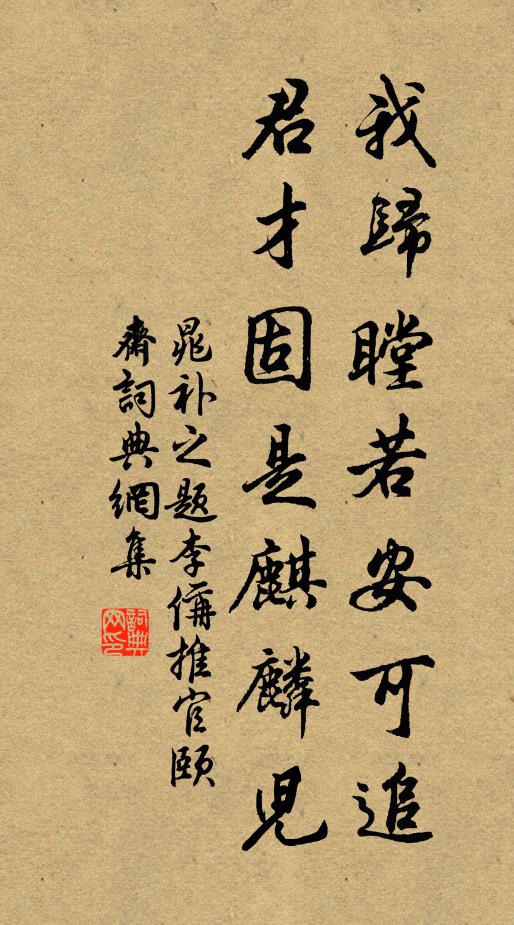 我歸瞠若安可追
君才固是麒麟兒
晁补之题李備推官頤
齋詞典網集
詞典网印